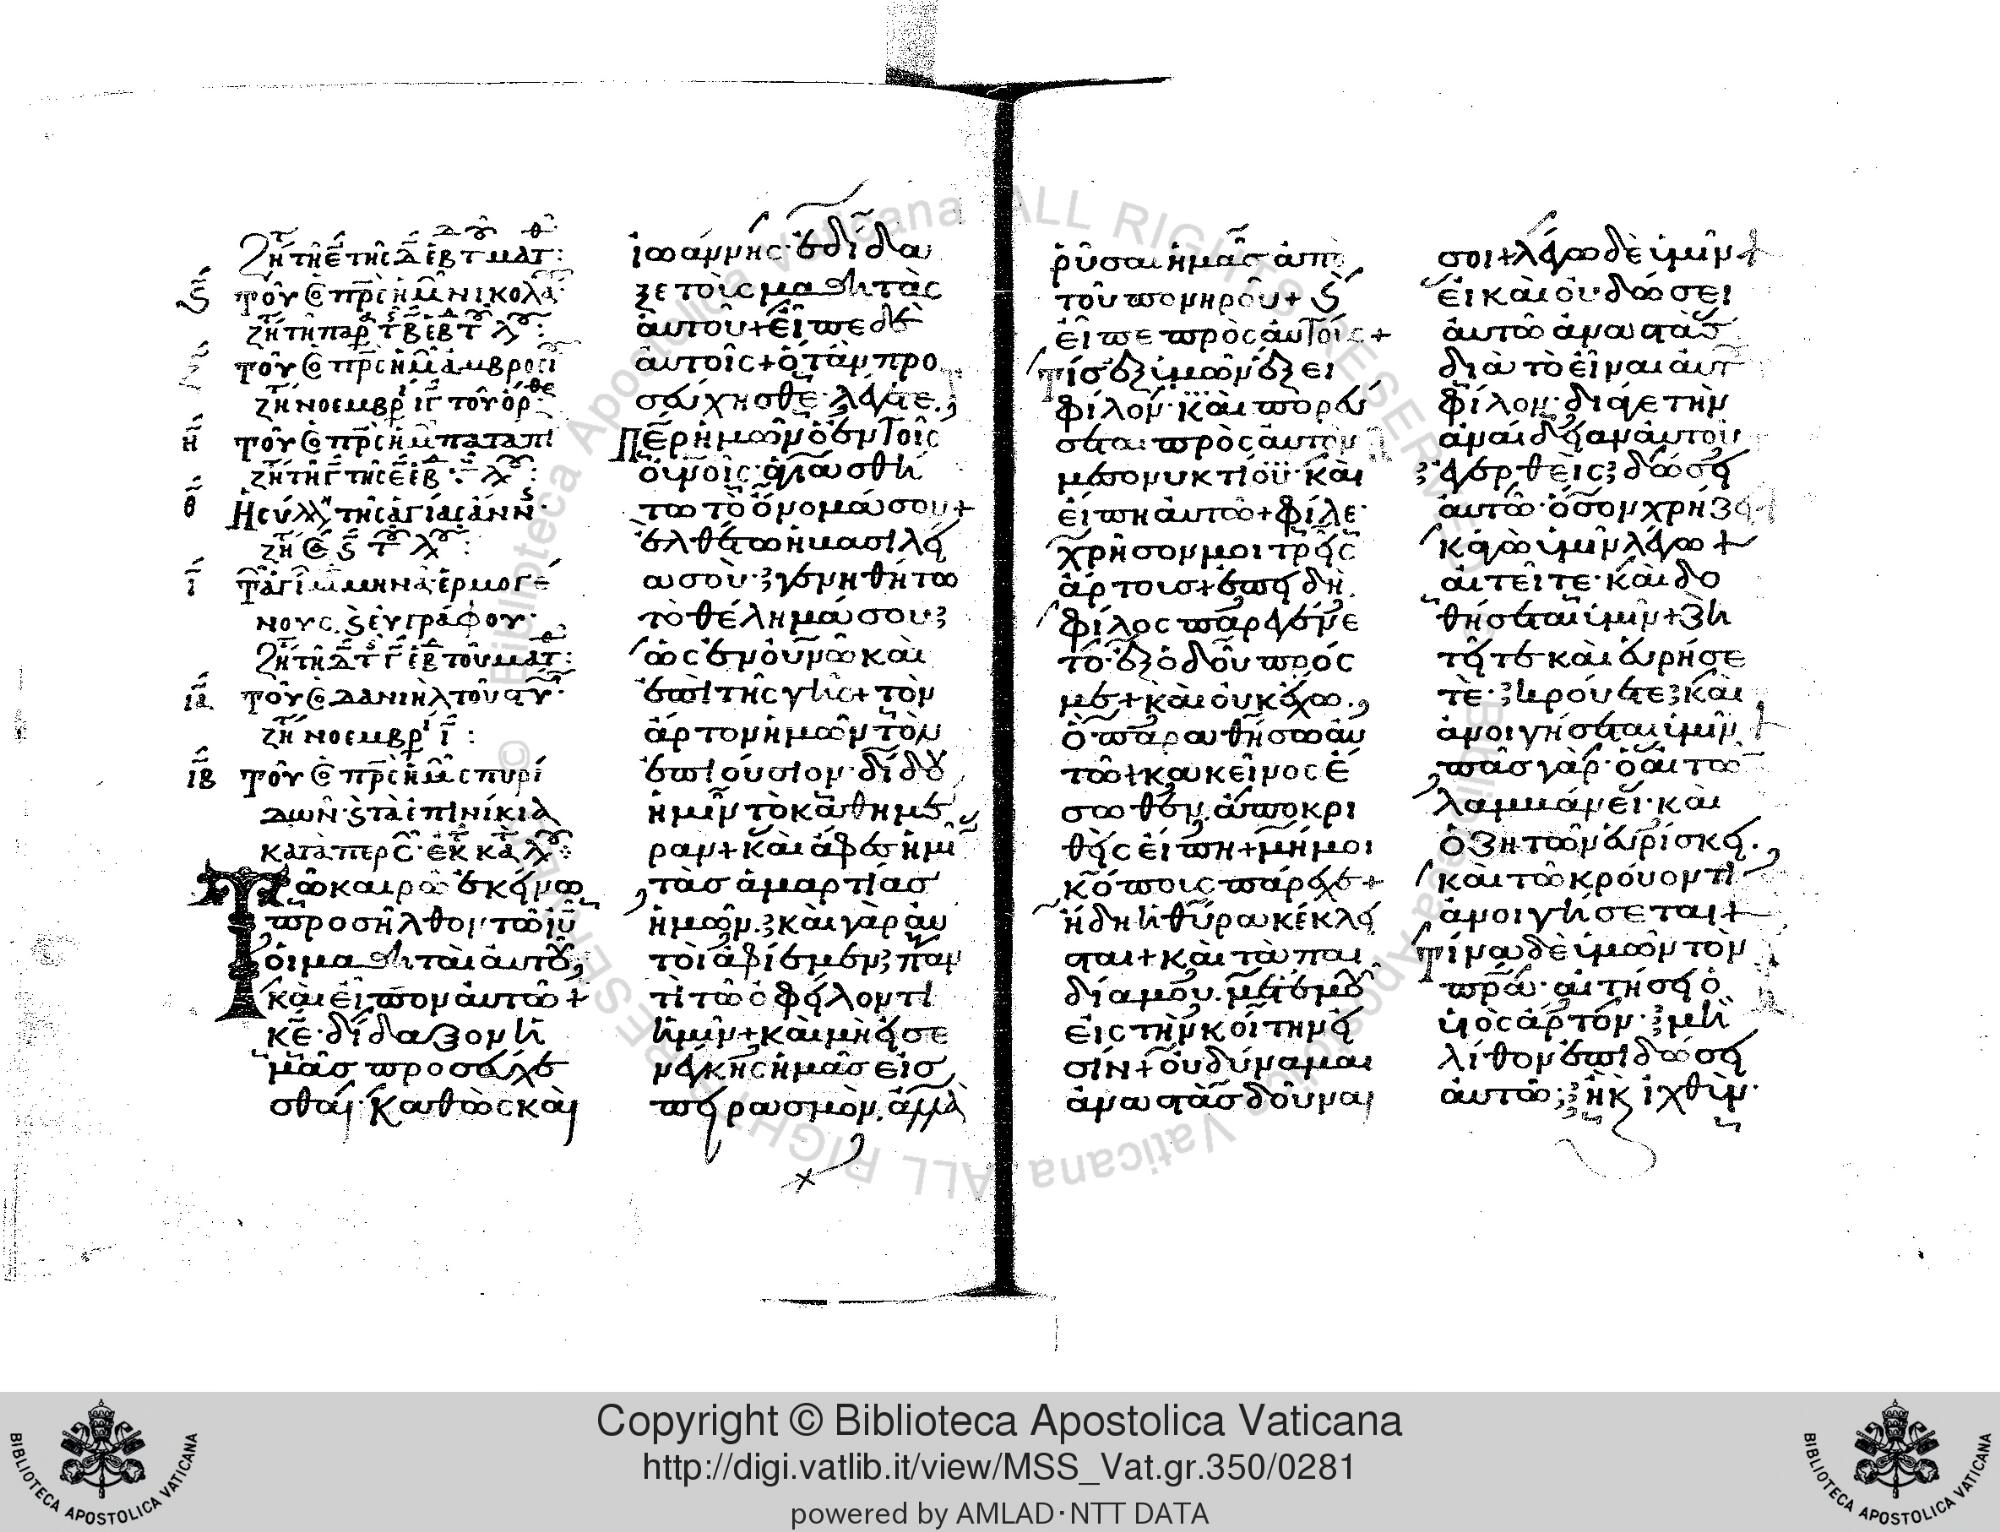 ζη τη ε της δ εβ τ ματθ:
ϛ του ο πρς ημ νικολα·
ζη τη παρ τ β εβ τ λου:
του ο πρς ημ αμβροσι
ζη νοεμβρ ιγ του ορθ·
η του ο πρς ημ παταπι
ζη τη γ της ε εβ : λου:
θ Η συλλη της αγιας αννης·
ζη ϛ τ λου:
ι τ αγι μηνα ερμογε
νους ϛ ευγραφου·
ζη τη δ τ γ εβ του ματθ:
ια του ο δανιηλ του στυ·
ζη νοεμβρ ι:
ιβ του ο πρς ημ σπυρι
δων· ϛ τα επινικια
κατα περσ·
Τῶ καιρῶ ἐκείνω
προσῆλθον τῶ ιυ
οἱ μαθηταὶ αὐτοῦ,
καὶ εἶπον αὐτῶ+
κε· δίδαξον ἡ
μᾶς προσεύχε
σθαι· καθὼς καὶ
ἰωάννης· ἐδίδα
ξε τοὺς μαθητὰς
αὐτοῦ+ εἶπε δὲ
αὐτοῖς+ ὅταν προ
σεύχησθε· λέγετε.
Περ ἡμῶν ὁ ἐν τοῖς
οὐνοῖς· ἁγιασθή
τω τὸ ὄνομά σου+
ἐλθέτω ἡ βασιλεί
α σου· γενηθήτω
τὸ θέλημά σου
ὡς ἐν οὐνῶ καὶ
ἐπὶ τῆς γῆς+ τὸν
ἄρτον ἡμῶν τὸν
ἐπιούσιον· δίδου
ἡμῖν τὸ καθ ημέ
ραν+ καὶ ἄφες ἡμῖ
τὰς ἁμαρτίας
ἡμῶν. καὶ γὰρ αὐ
τοὶ ἀφίεμεν παν
τὶ τῶ ὀφείλοντι
ἡμῖν+ καὶ μὴ εἰσε
νέγκης ἡμᾶς εἰς
πειρασμὸν. ἀλλὰ
ῥῦσαι ἡμᾶς ἀπὸ
τοῦ πονηροῦ+ ϛ
εἶπε πρὸς αὐτοίς+
Τίς ἐξ ὑμῶν ἕξει
φίλον· καὶ πορεύ
σεται πρὸς αὐτὸν
μεσονυκτίου· καὶ
εἴπη αὐτῶ+ φίλε·
χρῆσον μοι τρεῖς
ἄρτους+ ἐπειδὴ
φίλος παρεγένε
το· ἐξ ὁδοῦ πρός
με+ καὶ οὐκ ἔχω.
ὃ παραθήσω αὐ
τῶ+ κακεῖνος ἔ
σωθεν. ἀποκρι
θεὶς εἴπη+ μή μοι
κόπους πάρεχε+
ἤδη ἡ θύρα κέκλει
σται+ καὶ τὰ παι
δία μου. μετ ἐμοῦ
εἰς τὴν κοίτην εἰ
σίν+ οὐ δύναμαι
ἀναστὰς δοῦναι
σοι+ λέγω δὲ ὑμῖν+
εἰ καὶ οὐ δώσει
αὐτῶ ἀναστὰς
διὰ τὸ εἶναι αὐτ
φίλον· διά γε τὴν
ἀναίδειαν αὐτοῦ
ἐγερθεὶς δώσει
αὐτῶ· ὅσον χρήζει
κἀγὼ ὑμῖν λέγω+
αἰτεῖτε· καὶ δο
θήσεται ὑμῖν+ ζη
τεῖτε καὶ εὑρήσε
τε· κρούετε καὶ
ἀνοιγήσεται ὑμῖν
πᾶς γὰρ· ὁ αἰτῶ
λαμβάνει· καὶ
ὁ ζητῶν εὑρίσκει.
καὶ τῶ κρούοντι
ἀνοιγήσεται+
Τίνα δὲ ὑμῶν τὸν
πρα· αἰτήσει ὁ
υἱὸς ἄρτον· μὴ
λίθον ἐπιδώσει
αὐτῶ; ἢ κ ἰχθὺν·
Copyright © Biblioteca Apostolica Vaticana
http://digi.vatlib.it/view/MSS_Vat.gr.350/0281
powered by AMLAD·NTT DATA
BIBLIOTECA APOSTOLICA VATICANA
BIBLIOTECA APOSTOLICA VATICANA